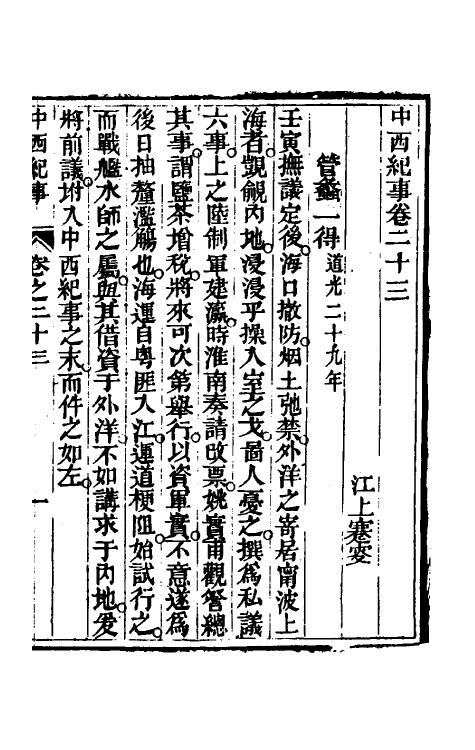 中西紀事卷二十三
江上蹇叟
管蠡一得道光二十九年
壬寅撫議定後海口撤防烟土弛禁外洋之寄居甯波上
海者覬覦內地浸浸乎操入室之戈啚人憂之撰為私議
六事上之陸制軍建瀛時淮南奏請改票姚實甫觀詧總
其事謂鹽茶增稅將來可次第舉行以資軍實不意遂為
後日抽釐濫觴也海運自粵匪入江運道梗阻始試行之
而戰艦水師之屬與其借資于外洋不如講求于內地爰
將前議坿入中西紀事之末而件之如左
中西紀事 卷之二十三 一